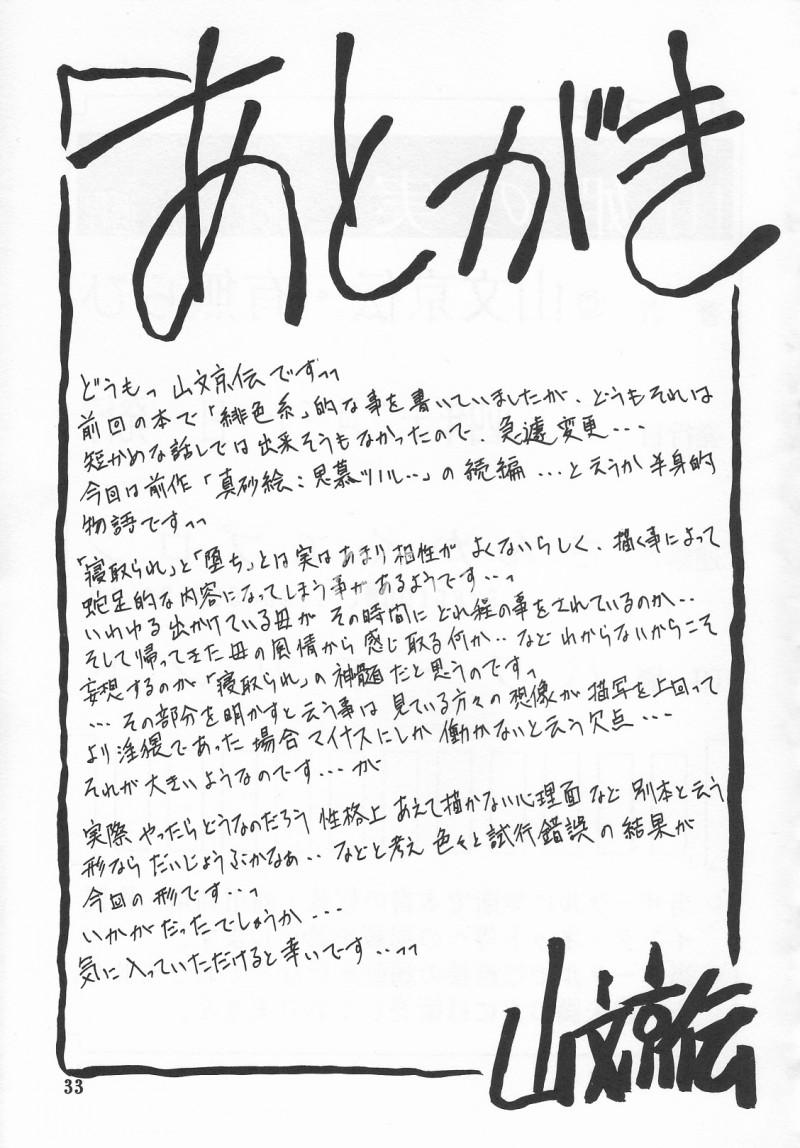 あとがき
どうもっ 山文京伝ですっっ
前回の本で「緋色系」的な事を書いていましたが、どうもそれは
短かめな話しでは出来そうもなかったので、急遽変更・・・
今回は前作「真砂絵:思慕ツノル・・」の続編・・・と云うか半身的
物語ですっっ
「寝取られ」と「堕ち」とは実はあまり相性がよくないらしく、描く事によって
蛇足的な内容になってしまう事があるようです・・っ
いわゆる出かけている母がその時間にどれ程の事をされているのか・・
そして帰ってきた母の風情から感じ取る何か・・などわからないからこそ
妄想するのが「寝取られ」の神髄だと思うのですっ
・・・その部分を明かすと云う事は見ている方々の想像が描写を上回って
より淫猥であった場合マイナスにしか働かないと云う欠点・・・
それが大きいようなのです・・・が
実際やったらどうなのだろう性格上あえて描かない心理面など別本と云う
形ならだいじょうぶかなあ・・などと考え色々と試行錯誤の結果が
今回の形です・・っ
いかがだったでしょうか・・・
気に入っていただけると幸いです・・っっ
山文京伝
33